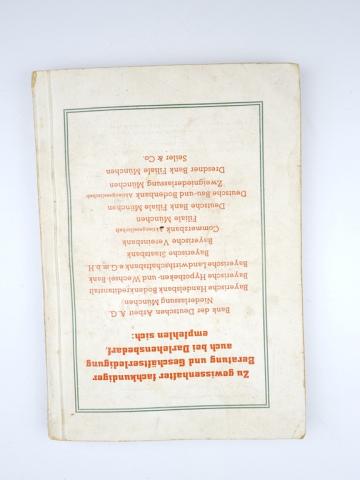 Zu gewissenhafter fachkundiger
Beratung und Geschäftserledigung
auch bei Darlehensbedarf,
empfehlen sich:
Bank der Deutschen Arbeit A.G.
Niederlassung München
Bayerische Handelsbank Bodenkreditanstalt
Bayerische Hypotheken- und Wechsel-Bank
Bayerische Landwirthschaftsbank e G m b H
Bayerische Staatsbank
Bayerische Vereinsbank
Commerzbank Aktiengesellschaft
Filiale München
Deutsche Bank Filiale München
Deutsche Bau- und Bodenbank Aktiengesellschaft
Zweigniederlassung München
Dresdner Bank Filiale München
Seiler & Co.